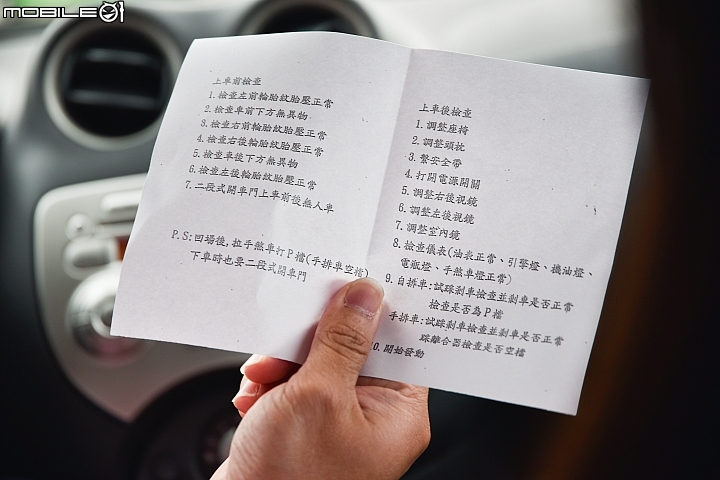 MOBILE01
上車前檢查
1. 檢查左前輪胎紋胎壓正常
2. 檢查車前下方無異物
3. 檢查右前輪胎紋胎壓正常
4. 檢查右後輪胎紋胎壓正常
5. 檢查車後下方無異物
6. 檢查左後輪胎紋胎壓正常
7. 二段式開車門上車前後無人車
P.S:回場後,拉手煞車打P檔(手排車空檔)
下車時也要二段式開車門
上車後檢查
1. 調整座椅
2. 調整頭枕
3. 繫安全帶
4. 打開電源開關
5. 調整右後視鏡
6. 調整左後視鏡
7. 調整室內鏡
8. 檢查儀表(油表正常、引擎燈、機油燈、
電瓶燈、手煞車燈正常)
9. 自排車:試踩剎車檢查並剎車是否正常
檢查是否為P檔
手排車:試踩剎車檢查並剎車是否正常
踩離合器檢查是否空檔
10. 開始發動